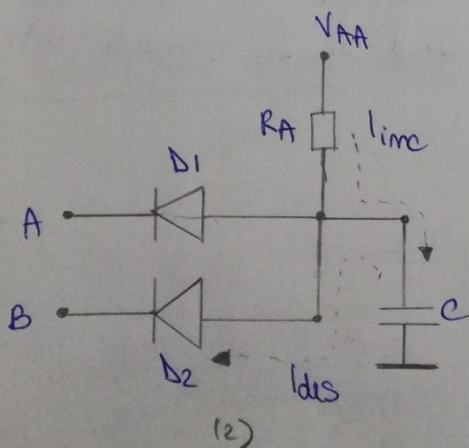 VAA
RA
Iinc
D1
A
B
C
D2
Ides
(2)